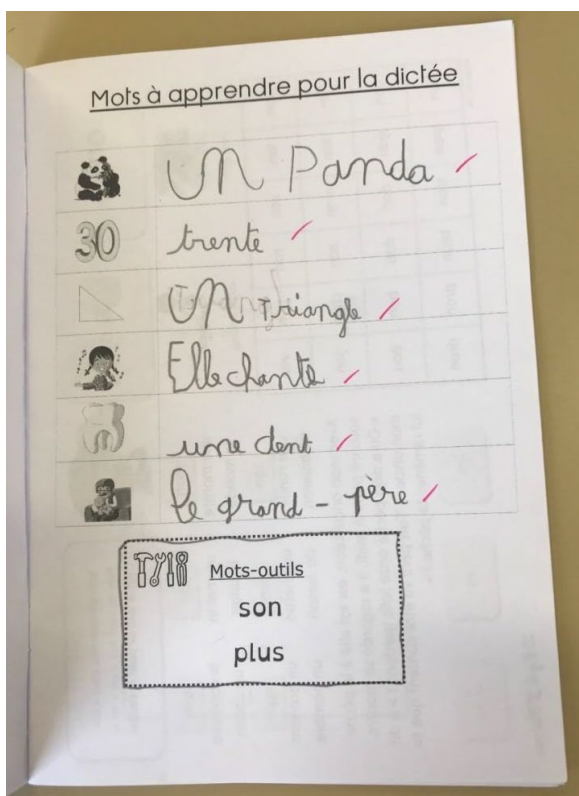 Mots à apprendre pour la dictée
Un Panda
30 trente
Un triangle
Elle chante
une dent
le grand-père
Mots-outils
son
plus